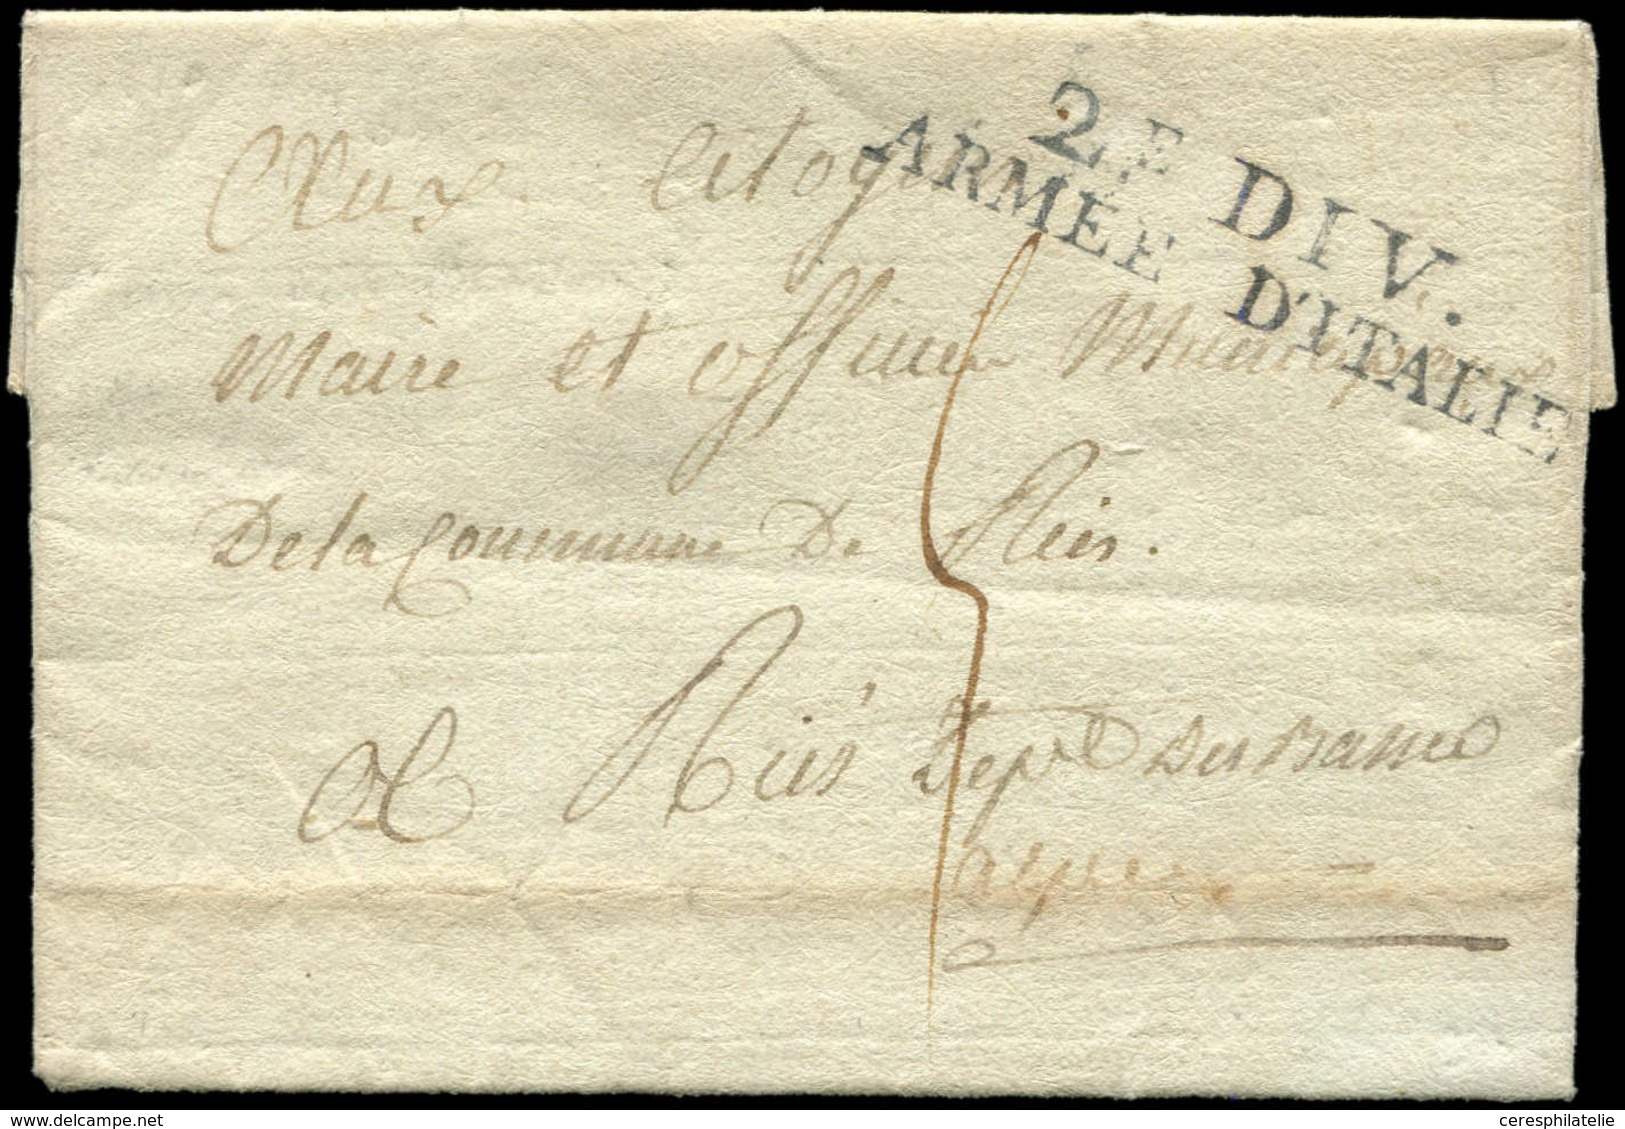 2E DIV.
ARMÉE D'ITALIE
Aux Citoyens
Maire et officiers Municipaux
De la Commune De Riés.
A Riés Dept Des basses
alpes
delcampe.net
ceresphilatelie